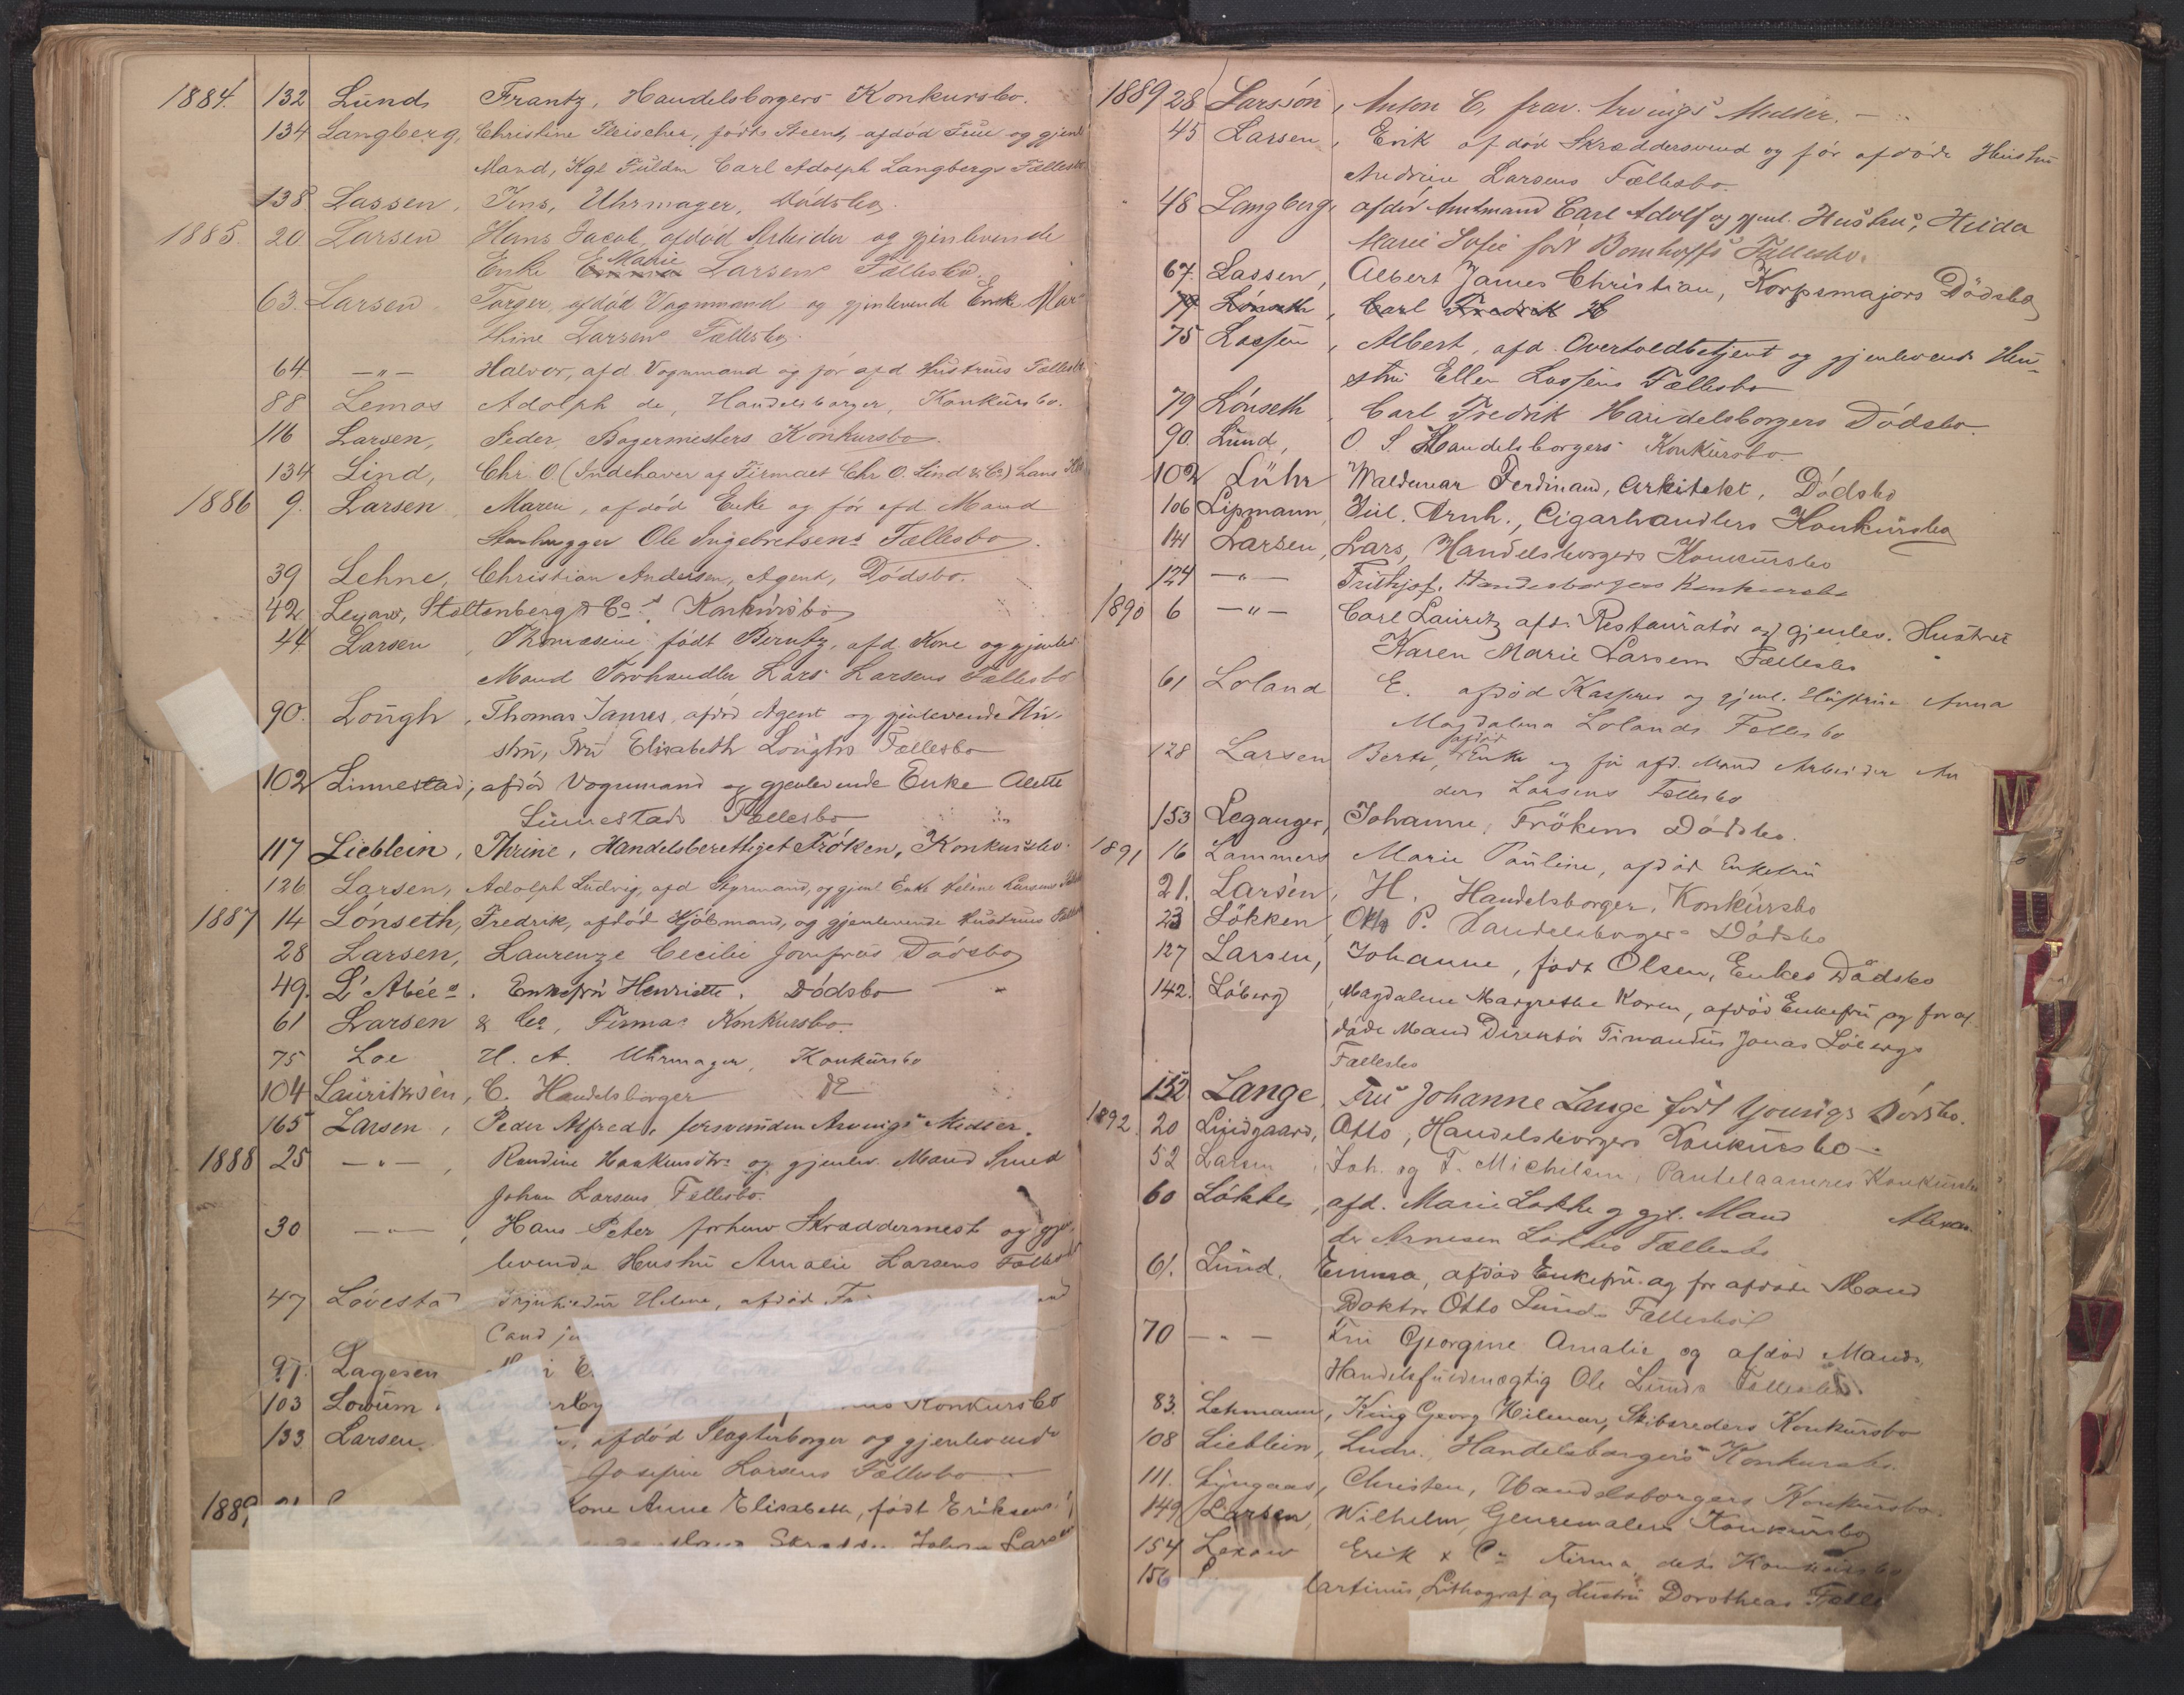 1884. 132 Lund, Frantz, Handelsborgers Konkursbo.
134 Langberg, Christine Fleischer, født Steen, afdød Frue og gjenl
Mand, Kgl Fuldm Carl Adolph Langbergs Fællesbo
138 Lassen, Jens, Uhrmager, Dødsbo
1885. 20 Larsen Hans Jacob, afdød Arbeider og gjenlevende
Enke Marie Larsens Fællesbo.
63. Larsen Torger, afdød Vognmand og gjenlevende Enke Mar
thine Larsens Fællesbo.
64 —"— Halvor, afd. Vognmand og før afd Hustrues Fællesbo
88 Lemos Adolph de, Handelsborger, Konkursbo.
116 Larsen, Peder, Bagermesters Konkursbo.
134 Lind, Chr. O. (Indehaver af Firmaet Chr. O. Lind & Co) hans
1886 9. Larsen Maren, afdød Enke og før afd Mand
Stenhugger Ole Ingebretsens Fællesbo.
39 Lehne, Christian Andersen, Agent, Dødsbo.
42 Lexow, Stoltenberg & Co.s Konkursbo
44 Larsen, Thomasine født Berntz, afd. Kone og gjenlev
Mand Torvhandler Lars Larsens Fællesbo
90. Lough, Thomas James, afdød Agent og gjenlevende Hu-
stru, Fru Elisabeth Loughs Fællesbo
102 Linnestad, afdød Vognmand og gjenlevende Enke Alette
Linnestads Fællesbo
117 Lieblein, Thrine, Handelsberettiget Frøken, Konkursbo.
126. Larsen, Adolph Ludvig, afd Styrmand, og gjenl Enke Helene Larsens
1887 14 Lønseth, Fredrik, afdød Kjøbmand, og gjenlevende Hustrues
28 Larsen, Laurenze Cecilie Jomfrus Dødsbo
49. L'Abée, Enkefru Henriette. Dødsbo
61 Larsen & Co, Firmas Konkursbo.
75 Loe H. A. Uhrmager, Konkursbo
104 Lauritzsen, C. Handelsborger do
165 Larsen, Peder Alfred, forsvunden Arvings Midler.
1888 25 —"—, Randine Haakensdtr og gjenlev. Mand Smed
Johan Larsens Fellesbo.
30 —"—, Hans Peter forhenv. Skræddermest og gjen
levende Hustru Amalie Larsens Fællesbo
47 Løvesta Helene, afdød
Cand ju
97. Lagesen
103 Lowum Konkursbo
133 Larsen. afdød Slagterborger og gjenlevende
Josefine Larsens Fællesbo
1889 Kone Anne Elisabeth, født Eriksen
Mand Skrædder Johan Larsen
1889 28 Larssøn, Anton C, frav. Arvings Midler. —
45 Larsen, Erik afdød Skræddersvend og før afdøde Hustru
Andrine Larsens Fællesbo.
48 Langberg, afdød Amtmand Carl Adolf og gjenl. Hustru, Huida
Marie Sofie født Bomhoffs Fællesbo.
67. Lassen, Albert James Christian, Korpsmajors Dødsbo
79 Lønseth, Carl Fredrik H
75 Lassen, Albert, afd. Overtoldbetjent og gjenlevende Hu-
stru Ellen Lassens Fællesbo
79 Lønseth, Carl Fredrik Handelsborgers Dødsbo.
90. Lund, O. S. Handelsborgers Konkursbo.
102 Lühr Waldemar Ferdinand, Arkitekt, Dødsbo
106 Lipmann, Jul. Arnh., Cigarhandlers Konkursbo
141 Larsen, Lars, Handelsborgers Konkursbo
124 —"— Frithjof, Handelsborgers Konkursbo
1890 6 —"— Carl Lauritz afd. Restauratør og gjenlev. Hustru
Karen Marie Larsens Fællesbo
61 Loland E. afdød Kasserer og gjenl. Hustrue Anna
Magdalena Lolands Fællesbo
128 Larsen Berte, afdød Enke og før afd. Mand Arbeider An
ders Larsens Fællesbo
153 Leganger, Johanne, Frøkens Dødsbo.
1891 16 Lammers Marie Pauline, afdød Enkefru
21. Larsen, H. Handelsborger, Konkursbo
23 Løkken, P. Handelsborgers Dødsbo
127 Larsen, Johanne, født Olsen, Enkes Dødsbo
142. Løberg, Magdalene Margrethe Koren, afdød Enkefru og før af-
døde Mand Direktør Timandus Jonas Løbergs
Fællesbo
152 Lange, Fru Johanne Lange født Youngs Dødsbo.
1892. 20 Lindgaard, Otto, Handelsborgers Konkursbo.
52 Larsen, Joh. og F. Michelsen, Pantelaaneres Konkursbo
60 Løkke, afd. Marie Løkke og gjl. Mand Alexan
der Arnesen Løkkes Fællesbo
61. Lund. Emma, afdød Enkefru og før afdøde Mand
Doktor Otto Lunds Fællesbo
70 —"— Fru Georgine Amalie og afdød Mands,
Handelsfuldmægtig Ole Lunds Fællesbo.
83. Lehmann, King Georg Hilmar, Skibsreders Konkursbo
108 Lieblein, Ludv. Handelsborgers Konkursbo.
111. Lyngaas, Christen, Handelsborgers Konkursbo.
149 Larsen, Wilhelm, Genremalers Konkursbo
154 Lexow Erik & Co Firma, dets Konkursbo
156 Lyng Martinius, Lithograf og Hustru Dorotheas Fælle
M
V